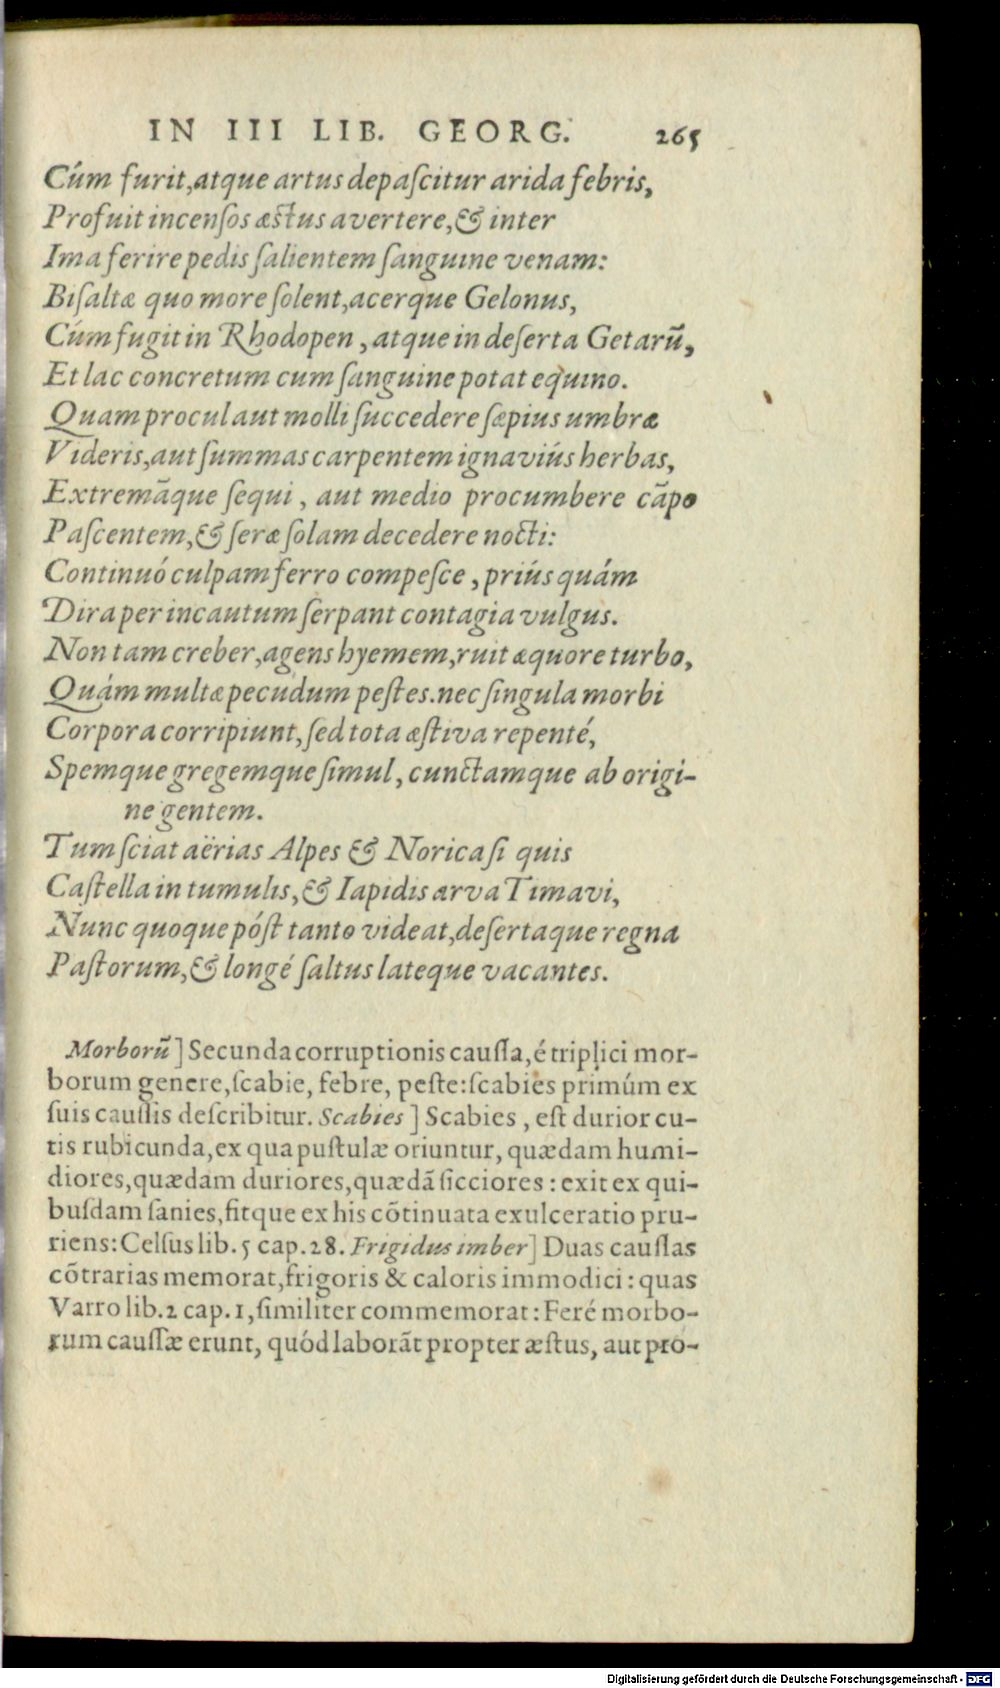 IN III LIB. GEORG. 265
Cúm furit, atque artus depaſcitur arida febris,
Profuit incenſos æſtus avertere, & inter
Ima ferire pedis ſalientem ſanguine venam:
Biſaltæ quo more ſolent, acerque Gelonus,
Cúm fugit in Rhodopen, atque in deſerta Getarū,
Et lac concretum cum ſanguine potat equino.
Quam procul aut molli ſuccedere ſæpius umbræ
Videris, aut ſummas carpentem ignaviús herbas,
Extremāque ſequi, aut medio procumbere cāpo
Paſcentem, & ſeræ ſolam decedere nocti:
Continuó culpam ferro compeſce, priús quám
Dira per incautum ſerpant contagia vulgus.
Non tam creber, agens hyemem, ruit æquore turbo,
Quám multæ pecudum peſtes. nec ſingula morbi
Corpora corripiunt, ſed tota æſtiva repenté,
Spemque gregemque ſimul, cunctamque ab origi-
ne gentem.
Tum ſciat aërias Alpes & Norica ſi quis
Caſtella in tumulis, & Iapidis arva Timavi,
Nunc quoque póſt tanto videat, deſertaque regna
Paſtorum, & longé ſaltus lateque vacantes.
Morborū] Secunda corruptionis cauſſa, é triplici mor-
borum genere, ſcabie, febre, peſte: ſcabies primúm ex
ſuis cauſſis deſcribitur. Scabies] Scabies, eſt durior cu-
tis rubicunda, ex qua puſtulæ oriuntur, quædam humi-
diores, quædam duriores, quædā ſicciores: exit ex qui-
buſdam ſanies, fitque ex his cōtinuata exulceratio pru-
riens: Celſus lib. 5 cap. 28. Frigidus imber] Duas cauſſas
cōtrarias memorat, frigoris & caloris immodici: quas
Varro lib. 2 cap. 1, ſimiliter commemorat: Feré morbo-
rum cauſſæ erunt, quód laborāt propter æſtus, aut pro-
Digitalisierung gefördert durch die Deutsche Forschungsgemeinschaft - DFG